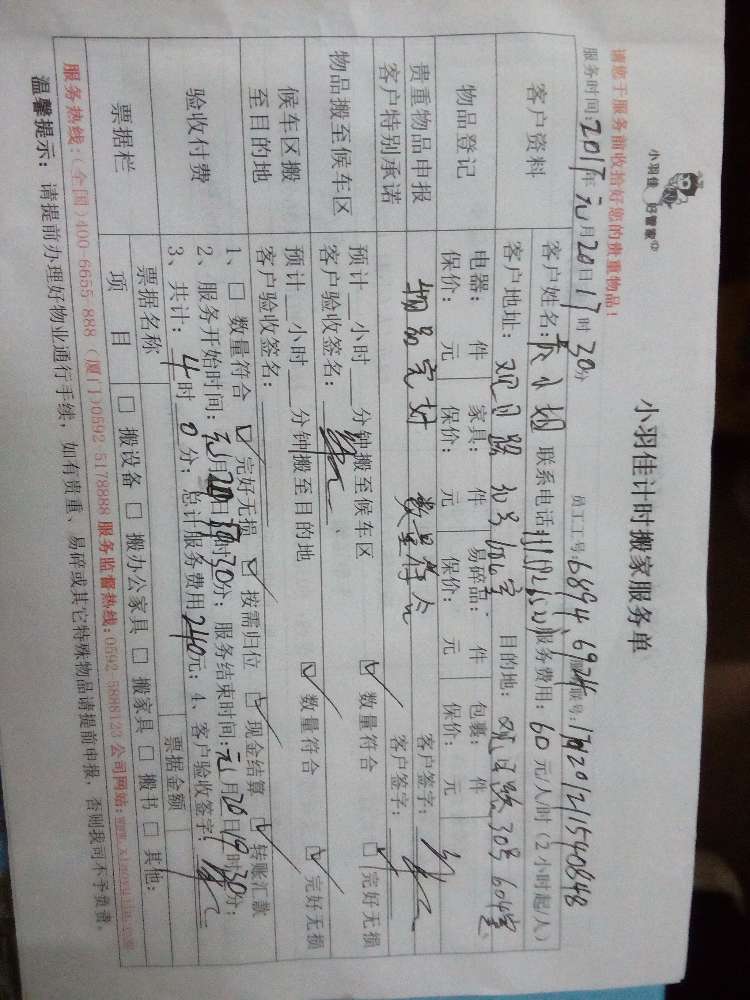 小羽佳 好管家
小羽佳计时搬家服务单
请您于服务前收拾好您的贵重物品!
员工工号:6894 6974 17120121540848
服务时间:2017年元月20日17时30分
客户资料
客户姓名: 联系电话: 服务费用:60元/人/时(2小时起/人)
客户地址:观日路 目的地:观日路30号604室
物品登记
电器: 件 家具: 件 易碎品: 件 包裹: 件
保价: 元 保价: 元 保价: 元 保价: 元
贵重物品申报
客户特别承诺
物品完好 数量符合
客户签字:
客户签字:
物品搬至候车区
预计 小时 分钟搬至候车区 ☑ 数量符合 ☑ 完好无损
客户验收签名:
候车区搬
至目的地
预计 小时 分钟搬至目的地 ☑ 数量符合 ☑ 完好无损
客户验收签名:
验收付费
1、□ 数量符合 ☑ 完好无损 ☑ 按需归位 ☑ 现金结算 ☑ 转账汇款
2、服务开始时间:元月20日17时30分;服务结束时间:元月20日19时30分;
3、共计:4时0分;总计服务费用240元;4、客户验收签字:
票据栏
票据名称 票据金额
项 目 □ 搬设备 □ 搬办公家具 □ 搬家具 □ 搬书 □ 其他:
服务热线:(全国)400-6655-888 (厦门)0592-5178888 服务监督热线:0592-5888123 公司网站:
温馨提示: 请提前办理好物业通行手续,如有贵重、易碎或其它特殊物品请提前申报,否则我司不予负责。